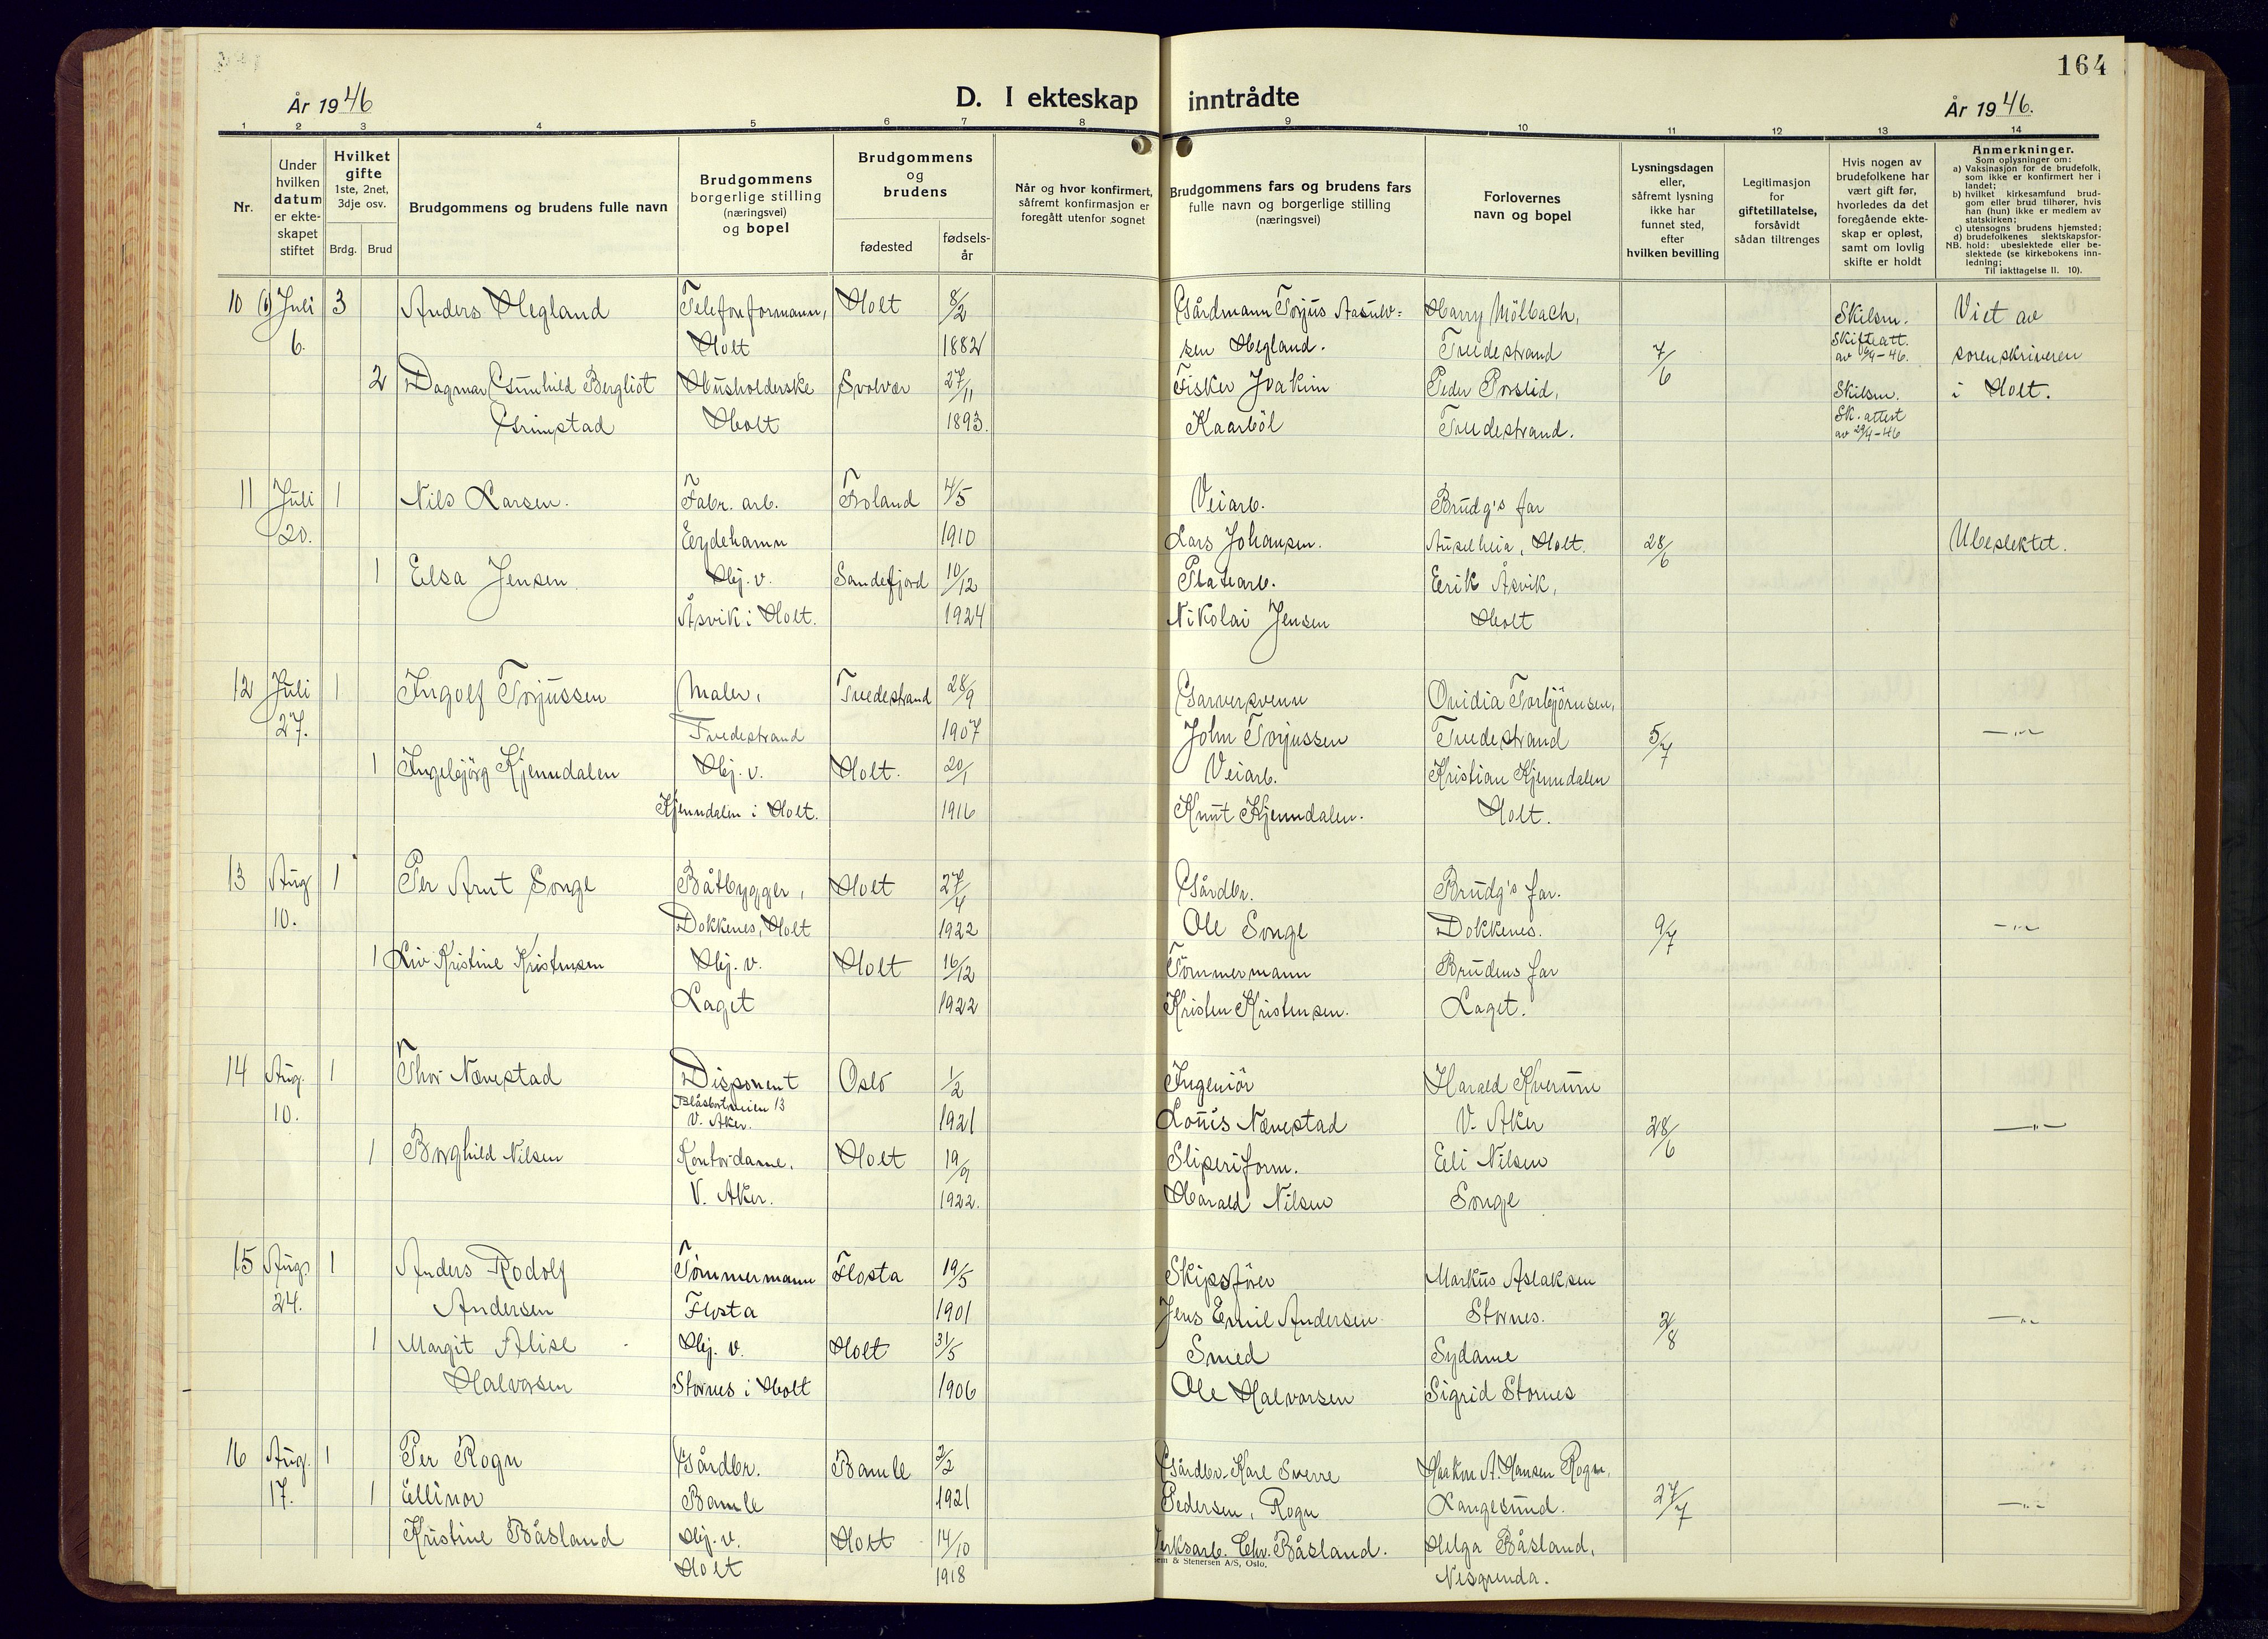 164
År 1946
D. I ekteskap inntrådte
År 1946.
1 2 3 4 5 6 7 8 9 10 11 12 13 14
Nr.
Under hvilken datum er ekteskapet stiftet
Hvilket gifte 1ste, 2net, 3dje osv.
Brdg. Brud
Brudgommens og brudens fulle navn
Brudgommens borgerlige stilling (næringsvei) og bopel
Brudgommens og brudens
fødested
fødselsår
Når og hvor konfirmert, såfremt konfirmasjon er foregått utenfor sognet
Brudgommens fars og brudens fars fulle navn og borgerlige stilling (næringsvei)
Forlovernes navn og bopel
Lysningsdagen eller, såfremt lysning ikke har funnet sted, efter hvilken bevilling
Legitimasjon for giftetillatelse, forsåvidt sådan tiltrenges
Hvis nogen av brudefolkene har vært gift før, hvorledes da det foregående ekteskap er opløst, samt om lovlig skifte er holdt
Anmerkninger.
Som oplysninger om:
a) Vaksinasjon for de brudefolk, som ikke er konfirmert her i landet;
b) hvilket kirkesamfund brudgom eller brud tilhører, hvis han (hun) ikke er medlem av statskirken;
c) utensogns brudens hjemsted;
d) brudefolkenes slektskapsforhold: ubeslektede eller beslektede (se kirkebokens innledning;
NB. Til iakttagelse II. 10).
10 Juli 3 Anders Hegland Telefonformann, Holt 8/2 Gårdmann Torjus Aasulv= Harry Mölbach, Skilsm. Viet av
6. Holt 1882 sen Hegland. Tvedestrand 7/6 Skifteatt. av -46. sorenskriveren
2 Dagmar Gunhild Bergliot Husholderske Svolvær 27/11 Fisker Joakim Peder Porslid, Skilsm. i Holt.
Grimstad Holt 1893. Kaarböl Tvedestrand. Sk. attest av 29/4-46
11 Juli 1 Nils Larsen. Fabr. arb. Froland 4/5 Veiarb. Brudg's far
20. Eydehamn 1910 Lars Johansen. Auselheia, Holt. 28/6 Ubeslektet.
1 Elsa Jensen. Hj. v. Sandefjord 10/12 Platearb. Eerik Åsvik,
Åsvik i Holt. 1924 Nikolai Jensen Holt
12 Juli 1 Ingolf Torjussen Maler, Tvedestrand 28/9 Garversvenn Ovidia Torbjörnsen,
27. Tvedestrand 1907 John Torjussen Tvedestrand 5/7 —"—
1 Ingebjörg Kjenndalen Hj. v. Holt. 20/1 Veiarb. Kristian Kjenndalen
Kjenndalen i Holt. 1916 Knut Kjenndalen. Holt.
13 Aug 1 Per Arnt Songe Båtbygger, Holt 27/4 Gårdbr. Brudg's far.
10. Dokkenes, Holt 1922 Ole Songe Dokkenes. 9/7 —"—
1 Liv Kristine Kristensen Hj. v. Holt 16/12 Tömmermann Brudens far
Laget 1922 Kristen Kristensen. Laget.
14 Aug. 1 Thor Nævestad Disponent Oslo 1/2 Ingeniör Harald Kverum
10. 13 V. Aker. 1921 Louis Nævestad V. Aker 28/6 —"—
1 Borghild Nilsen Kontordame, Holt 19/9 Sliperiform. Eeli Nilsen
V. Aker. 1922. Harald Nilsen Songe
15 Aug 1 Anders Rodolf Tömmermann Flosta 19/5 Skipsförer Markus Aslaksen
24. Andersen Flosta 1901 Jens Emil Andersen. Stornes. 2/8 —"—
1 Margit Alise Hj. v. Holt 31/5 Smed Sydame
Halvorsen Stornes i Holt 1906 Ole Halvorsen Sigrid Stornes
16 Aug. 1 Per Rogn Gårdbr. Bamle 2/2 Gårdbr. Karl Sverre Haakon A. Hansen Rogn,
17. 1 Ellinor Bamle 1921 Pedersen, Rogn Langesund. 27/7 —"—
Kristine Båsland Hj. v. Holt 14/10 Verksarb. Chr. Båsland. Helga Båsland,
Holt 1918 & Stenersen A/S, Oslo. Nesgrenda.